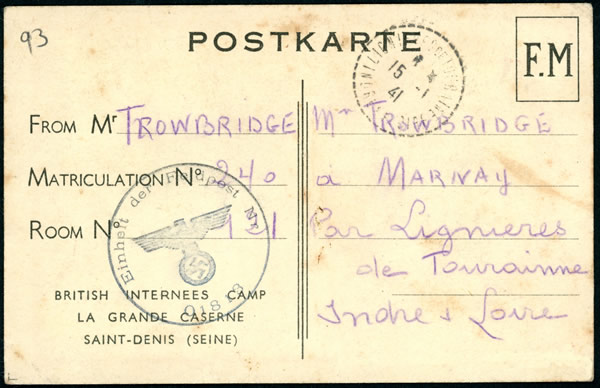 93
POSTKARTE
F.M
15
41
From Mr TROWBRIDGE
Matriculation No 240
Room No 121
Einheit der Feldpost Nr.
BRITISH INTERNEES CAMP
LA GRANDE CASERNE
SAINT-DENIS (SEINE)
Mrs TROWBRIDGE
a MARNAY
Par Lignieres
de Tourainne
Indre & Loire